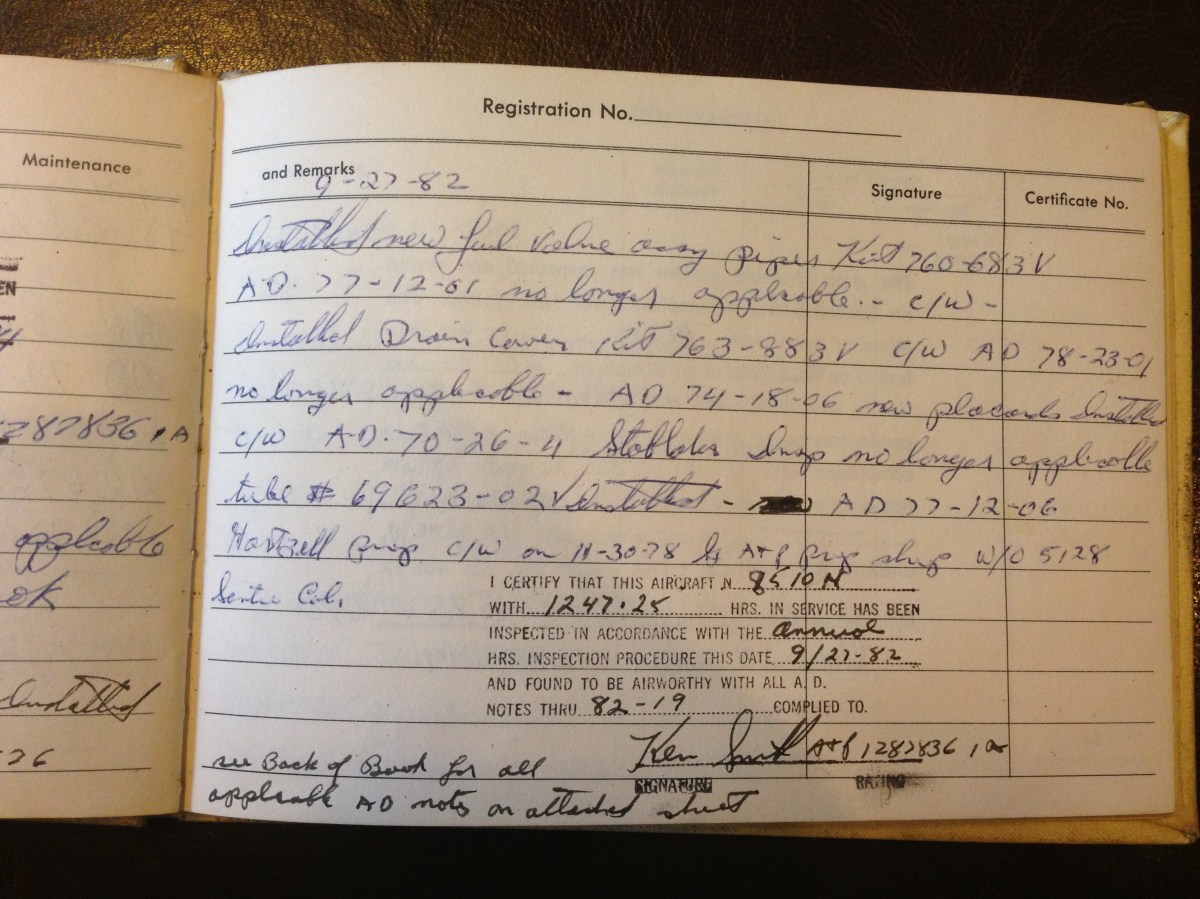 Registration No.
Maintenance
and Remarks
Signature
Certificate No.
9-27-82
Installed new fuel valve assy piper Kit 760-683V
AD. 77-12-01 no longer applicable.- C/W -
Installed Drain Cover Kit 763-883V C/W AD 78-23-01
no longer applicable - AD 74-18-06 new placards Installed
C/W AD. 70-26-4 Stabilator Insp no longer applicable
tube # 69623-02V Installed - AD 77-12-06
Hartzell prop C/W on 11-30-78 by A+P prop shop W/O 5128
I CERTIFY THAT THIS AIRCRAFT N 8510N
WITH 1247.25 HRS. IN SERVICE HAS BEEN
INSPECTED IN ACCORDANCE WITH THE annual
HRS. INSPECTION PROCEDURE THIS DATE 9/27-82
AND FOUND TO BE AIRWORTHY WITH ALL A. D.
NOTES THRU 82-19 COMPLIED TO.
Ken Smith A+P 1287836 , IA
SIGNATURE RATING
see Back of Book for all
applicable AD notes on attached sheet
EN
4
1287836 IA
applicable
ok
Installed
26